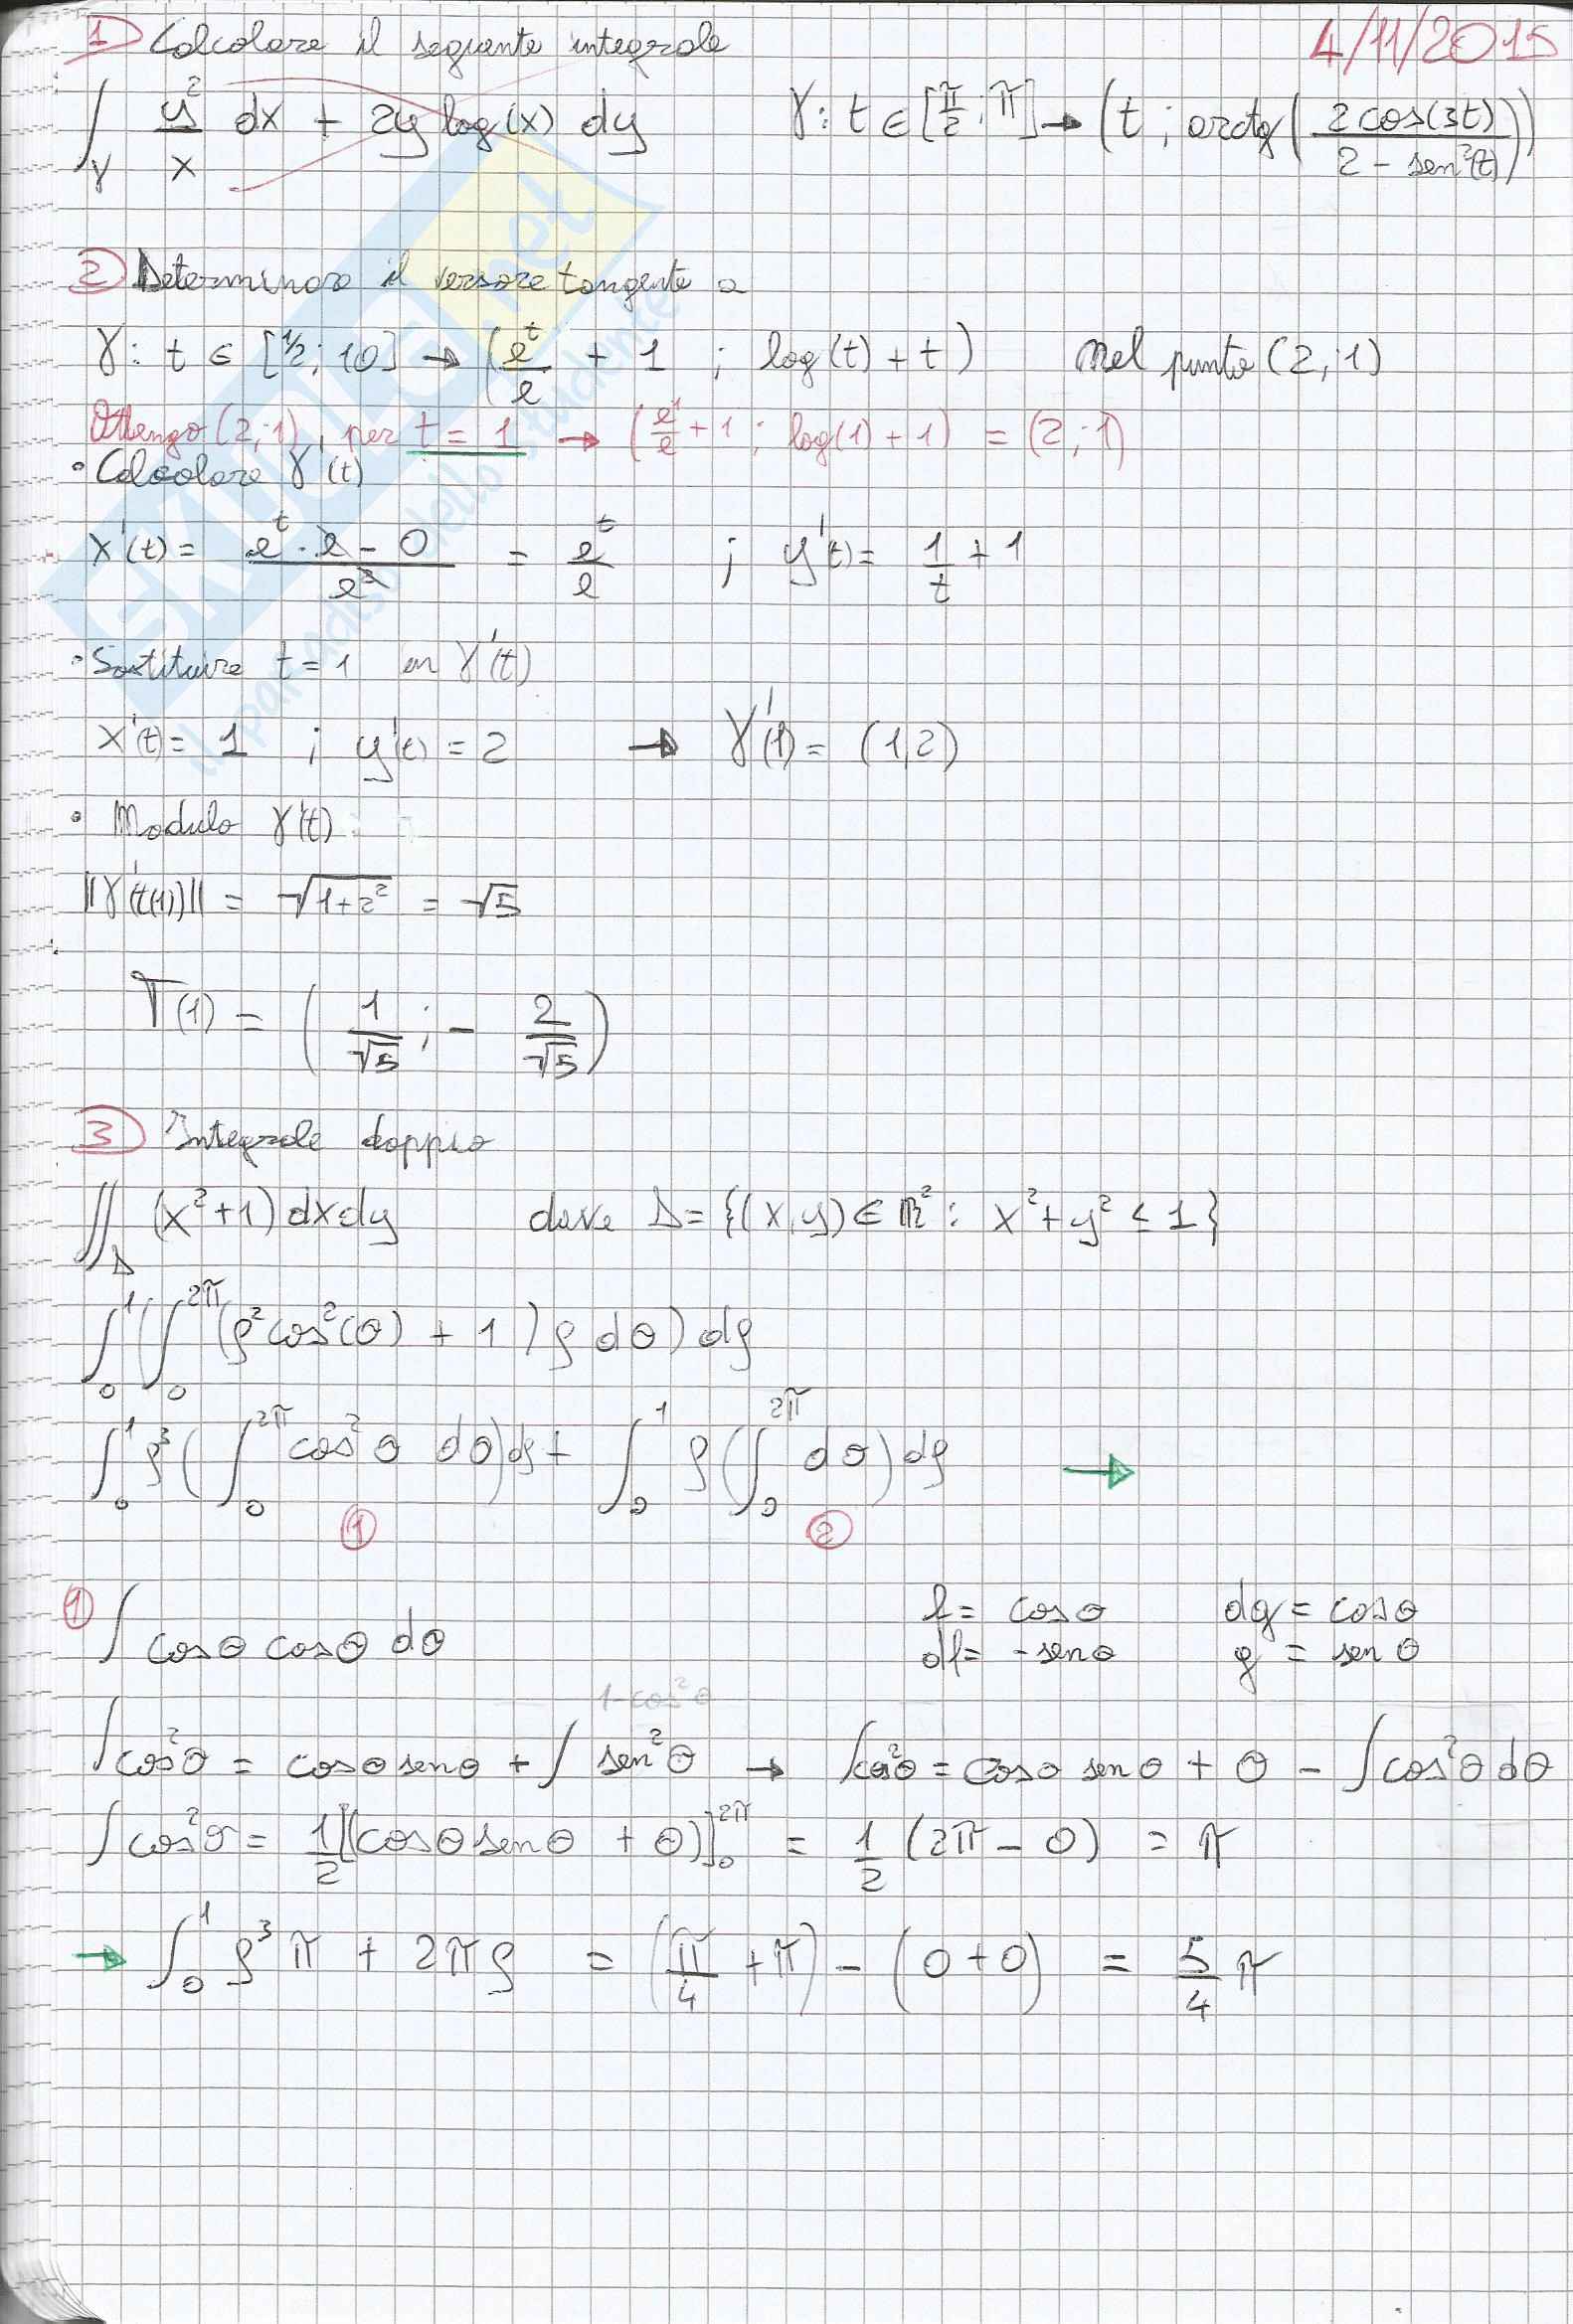 1) Calcolare il seguente integrale 4/11/2015
∫_γ y²/x dx + 2y log(x) dy γ: t ∈ [π/2 ; π] → (t ; arctg(2cos(3t)/(2 - sen²(t))))
2) Determinare il versore tangente a
γ: t ∈ [1/2 ; 10] → (e^t/e + 1 ; log(t) + t) nel punto (2 ; 1)
Ottengo (2 ; 1) per t = 1 → (e¹/e + 1 ; log(1) + 1) = (2 ; 1)
• Calcolare γ'(t)
x'(t) = (e^t · e - 0)/e² = e^t/e ; y'(t) = 1/t + 1
• Sostituire t = 1 in γ'(t)
x'(t) = 1 ; y'(t) = 2 → γ'(1) = (1,2)
• Modulo γ'(t) :
||γ'(t(1))|| = √(1+2²) = √5
T(1) = (1/√5 ; - 2/√5)
3) Integrale doppio
∬_Δ (x²+1) dx dy dove Δ = {(x,y) ∈ ℝ² : x² + y² ≤ 1}
∫₀¹ (∫₀^2π (ρ² cos²(θ) + 1) ρ dθ) dρ
∫₀¹ ρ³ (∫₀^2π cos²θ dθ) dρ + ∫₀¹ ρ (∫₀^2π dθ) dρ →
① ②
① ∫ cosθ cosθ dθ f = cosθ dg = cosθ
df = -senθ g = senθ
1-cos²θ
∫cos²θ = cosθ senθ + ∫ sen²θ → ∫cos²θ = cosθ senθ + θ - ∫cos²θ dθ
∫cos²θ = 1/2 [(cosθ senθ + θ)]₀^2π = 1/2 (2π - 0) = π
→ ∫₀¹ ρ³ π + 2πρ = (π/4 + π) - (0 + 0) = 5/4 π
SKUOLA.net
il paradiso dello studente